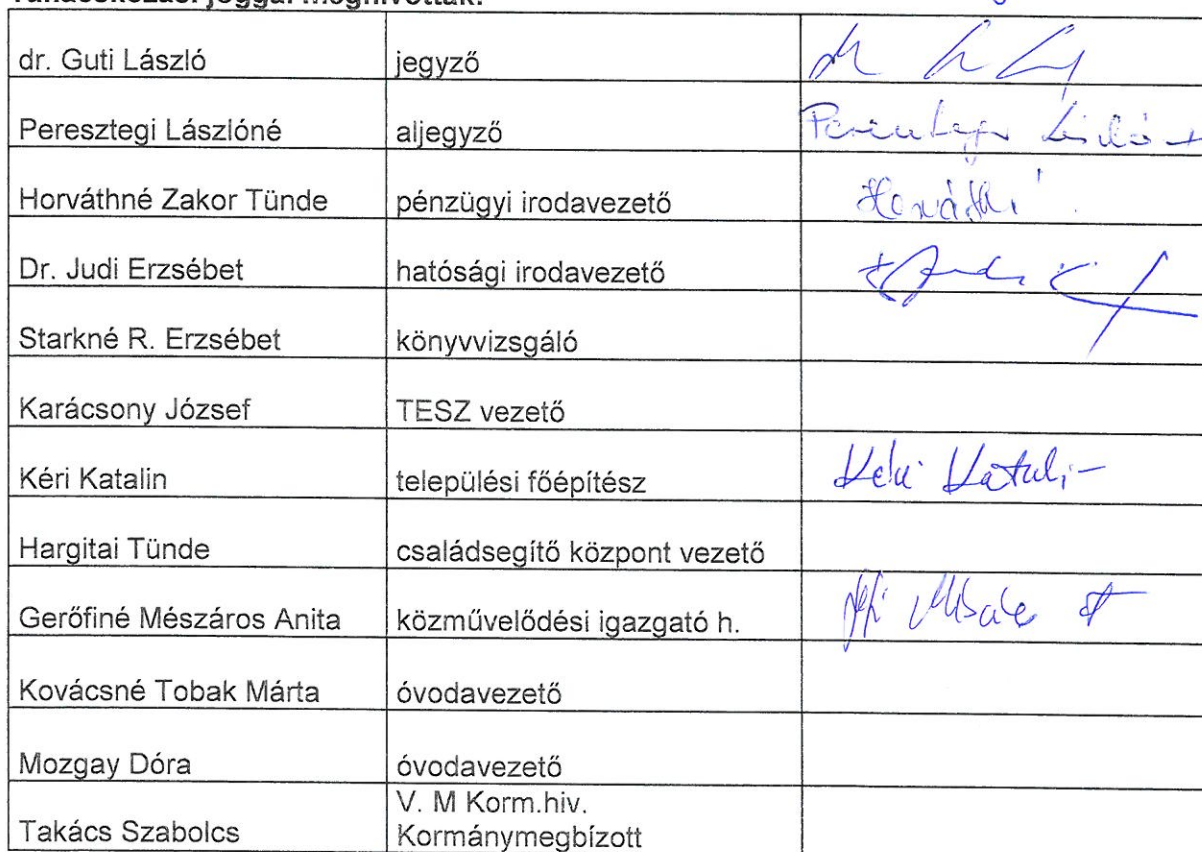 Tanácskozási joggal meghívottak:
dr. Guti László jegyző
Peresztegi Lászlóné aljegyző Peresztegi Lászlóné
Horváthné Zakor Tünde pénzügyi irodavezető Horváthné
Dr. Judi Erzsébet hatósági irodavezető
Starkné R. Erzsébet könyvvizsgáló
Karácsony József TESZ vezető
Kéri Katalin települési főépítész Kéri Katalin
Hargitai Tünde családsegítő központ vezető
Gerőfiné Mészáros Anita közművelődési igazgató h.
Kovácsné Tobak Márta óvodavezető
Mozgay Dóra óvodavezető
Takács Szabolcs V. M Korm.hiv.
Kormánymegbízott